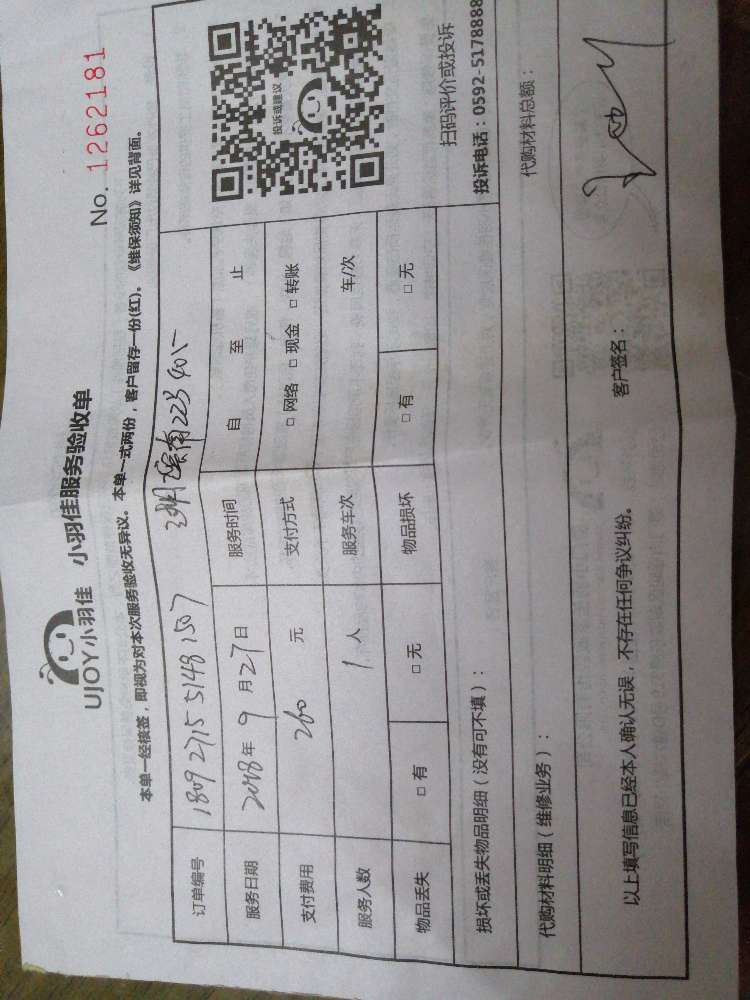 UJOY小羽佳 小羽佳服务验收单
No. 1262181
本单一经核签，即视为对本次服务验收无异议。本单一式两份，客户留存一份(红)。《维保须知》详见背面。
订单编号 1809 2715 5148 1507
服务日期 2018年9月27日 服务时间 自 至 止
支付费用 260 元 支付方式 □ 网络 □ 现金 □ 转账
服务人数 1 人 服务车次 车/次
物品丢失 □ 有 □ 无 物品损坏 □ 有 □ 无
投诉或建议
扫码评价或投诉
投诉电话：0592-5178888
损坏或丢失物品明细（没有可不填）：
代购材料明细（维修业务）： 代购材料总额：
以上填写信息已经本人确认无误，不存在任何争议纠纷。 客户签名：